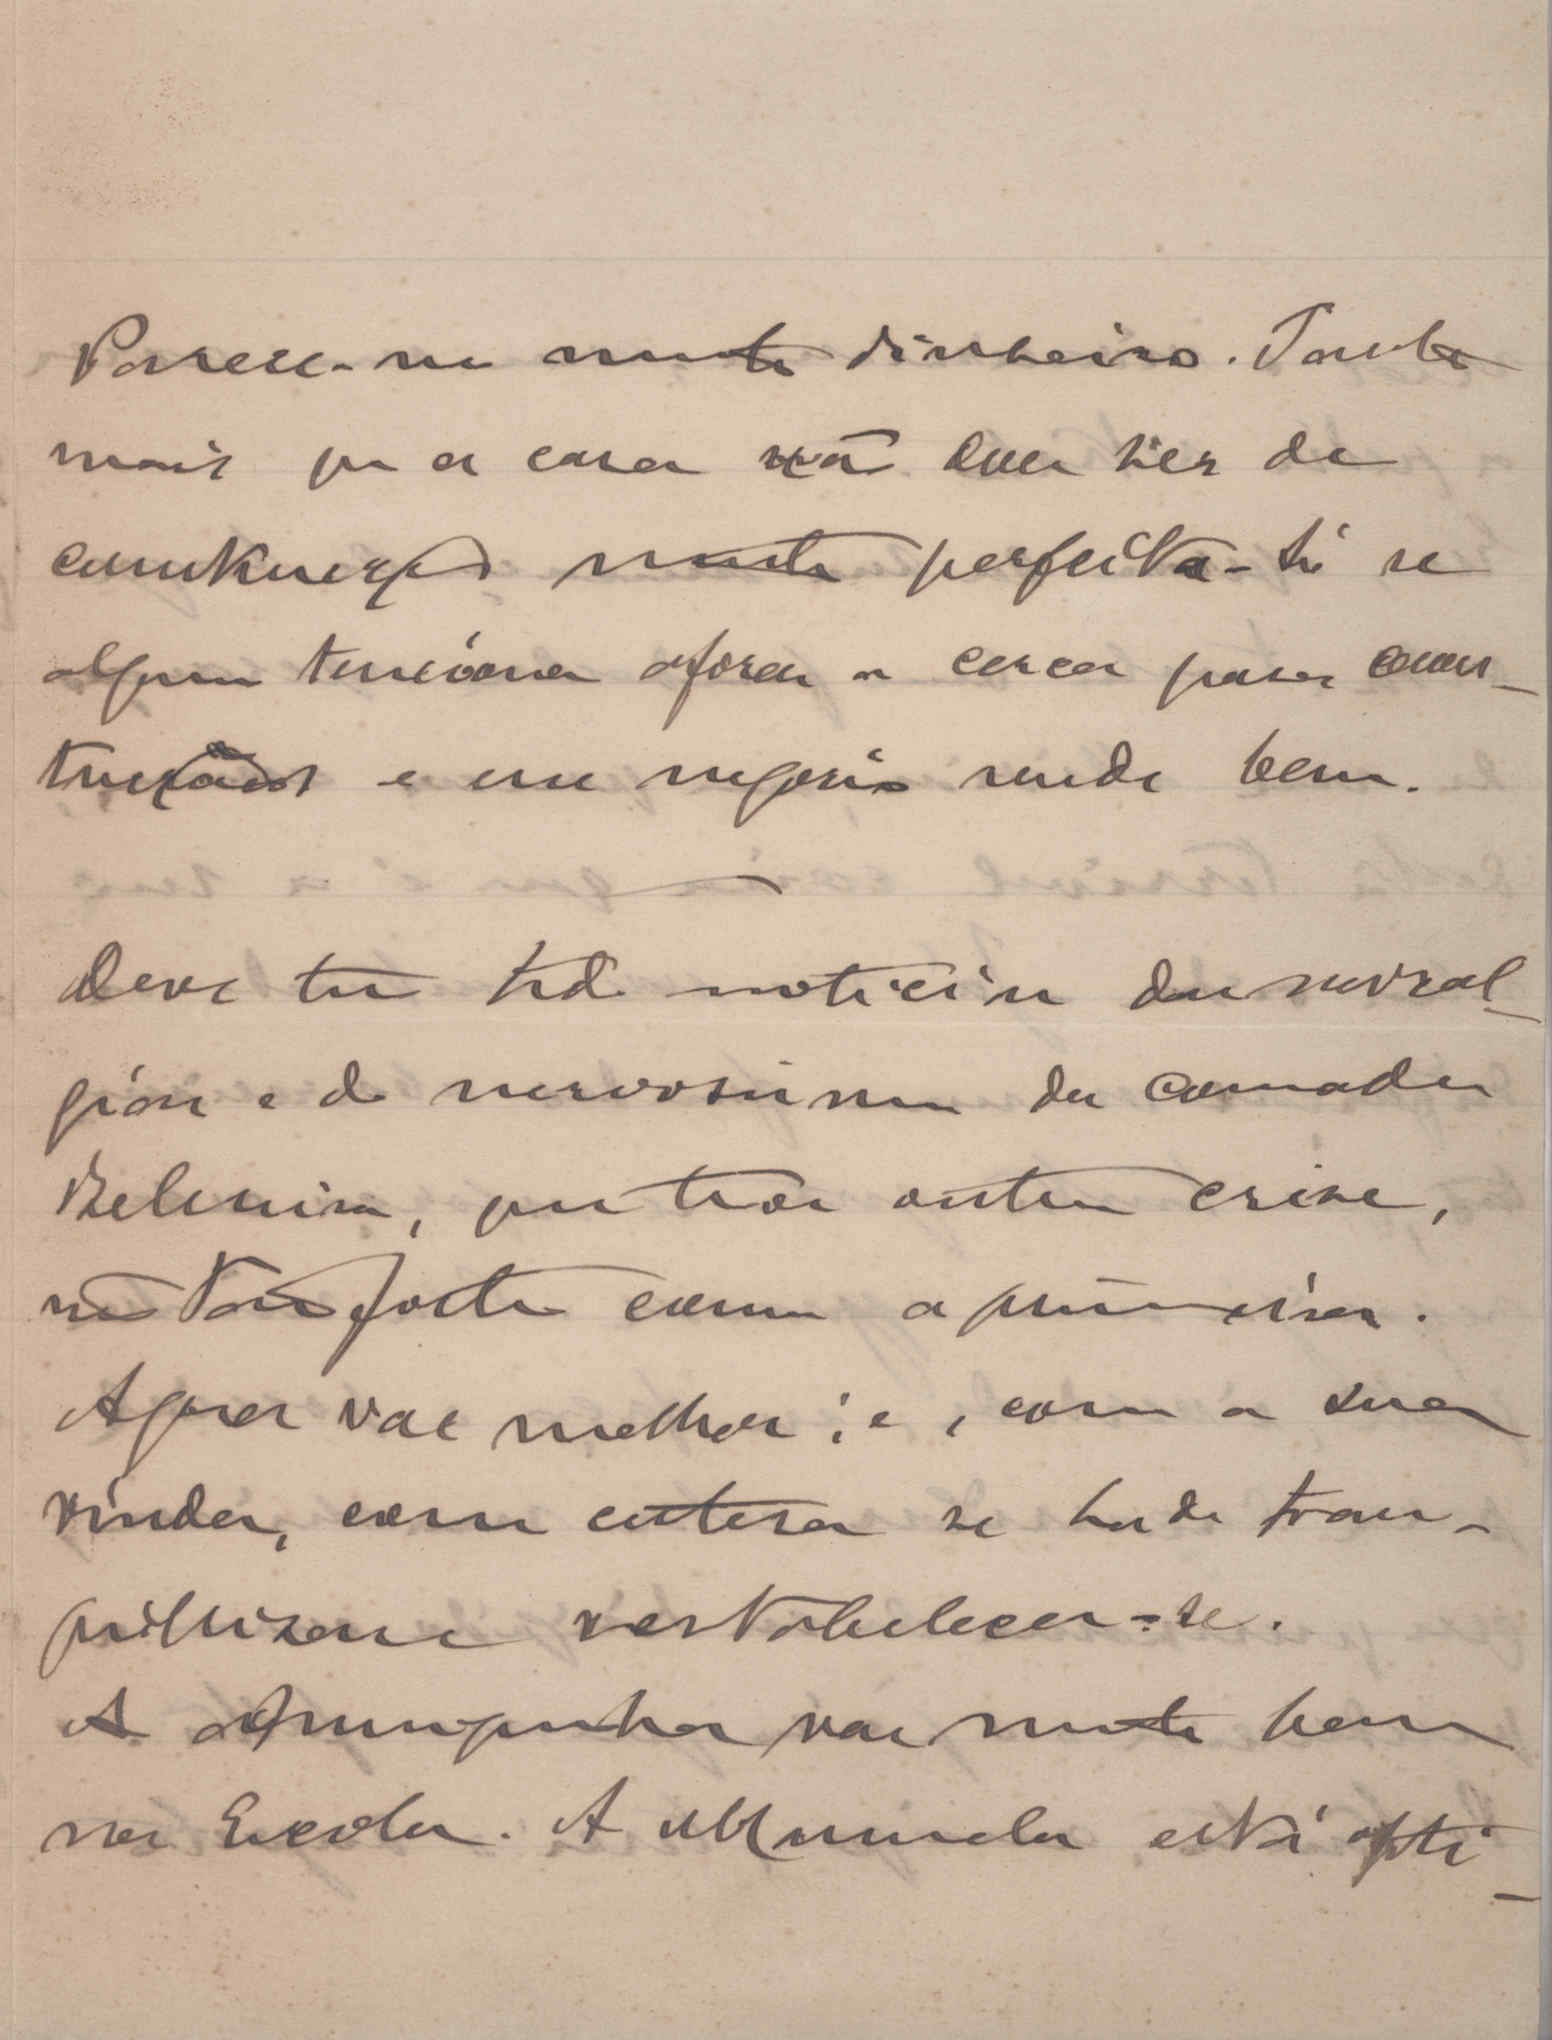 Parece-me muito dinheiro. Tanto
mais que a casa não deve ser de
construcção muito perfeita. Só se
alguem tenciona aforar a cerca para cons-
trucções e esse negocio rende bem.
Deve ter tido noticia da nevral-
gia e do nervosismo da comadre
Belmira, que teve outra crise,
não tão forte como a primeira.
Agora vae melhor; e, com a sua
vinda, com certeza se ha de tran-
quillizar e restabelecer-se.
A vae muito bem
na Escola. A Manuela está opti-